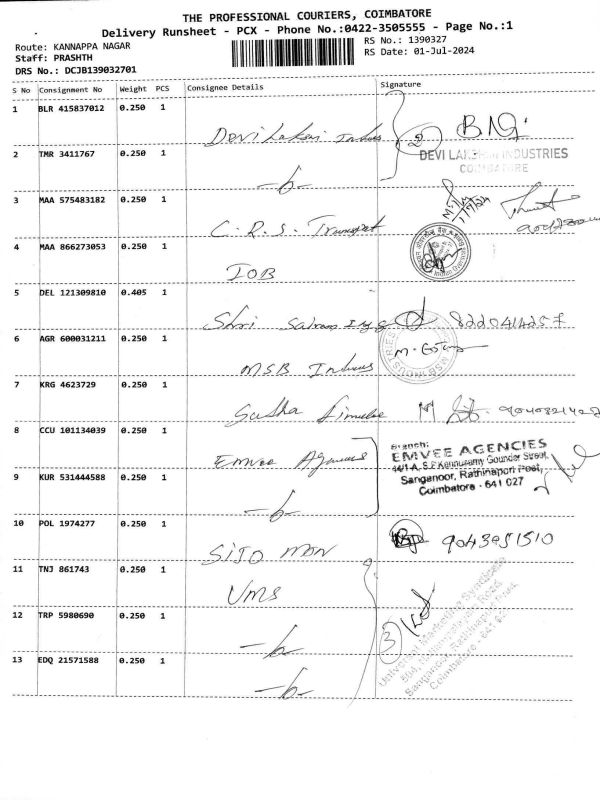 THE PROFESSIONAL COURIERS, COIMBATORE
Delivery Runsheet - PCX - Phone No.:0422-3505555 - Page No.:1
Route: KANNAPPA NAGAR
Staff: PRASHTH
DRS No.: DCJB139032701
RS No.: 1390327
RS Date: 01-Jul-2024
S No Consignment No Weight PCS Consignee Details Signature
1 BLR 415837012 0.250 1
Devi Lakshmi Indus (2)
2 TMR 3411767 0.250 1
DEVI LAKSHMI INDUSTRIES
COIMBATORE
3 MAA 575483182 0.250 1
C.R.S. Transport
4 MAA 866273053 0.250 1
IOB
5 DEL 121309810 0.405 1
Shri Sairam Engg
6 AGR 600031211 0.250 1
MSB Indus
7 KRG 4623729 0.250 1
Sudha
8 CCU 101134039 0.250 1
Emvee Agencies
Branch:
EMVEE AGENCIES
44/1-A, S.F.Kennusamy Gounder Street,
Sanganoor, Rathinapuri Post,
Coimbatore - 641 027
9 KUR 531444588 0.250 1
10 POL 1974277 0.250 1
SIJO MON 9043951510
11 TNJ 861743 0.250 1
UMS
12 TRP 5980690 0.250 1
3
Universal Marketing Syndicate
13 EDQ 21571588 0.250 1